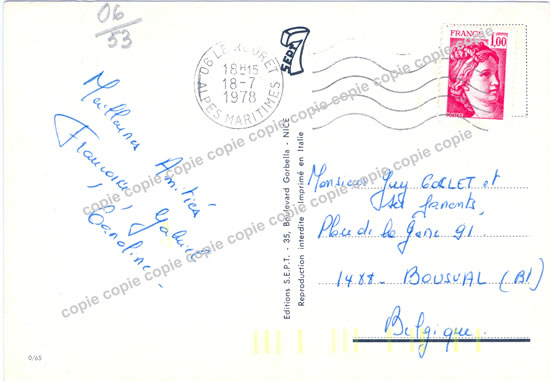 06
53
06 LE ROURET
18H15
18-7
1978
ALPES MARITIMES
SEPT
FRANCE
1,00
POSTES
Meilleures Amitiés
Francoise, Gabriel
Caroline.
Editions S.E.P.T. - 35, Boulevard Gorbella - NICE
Reproduction interdite - Imprimé en Italie
Monsieur Guy COLLET et
ses parents,
Place de la Gare 91
1488 - BOUSVAL (Bt)
Belgique.
0/65
copie copie copie copie copie copie copie copie copie copie
copie copie copie copie copie copie copie copie copie